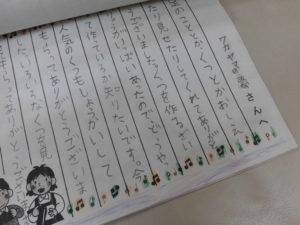 ワカヤマの皆さんへ
のことやくつとかおしえ
たり見せたりしてくれてありが
ございました。くつを作るざい
りょうがいっぱいあったのでどうや
て作っているか知りたいです。今
人気のくつもしょうかいして
もらってありがとうございま
したいろいろなくつを見
せてもらってありがとうござい